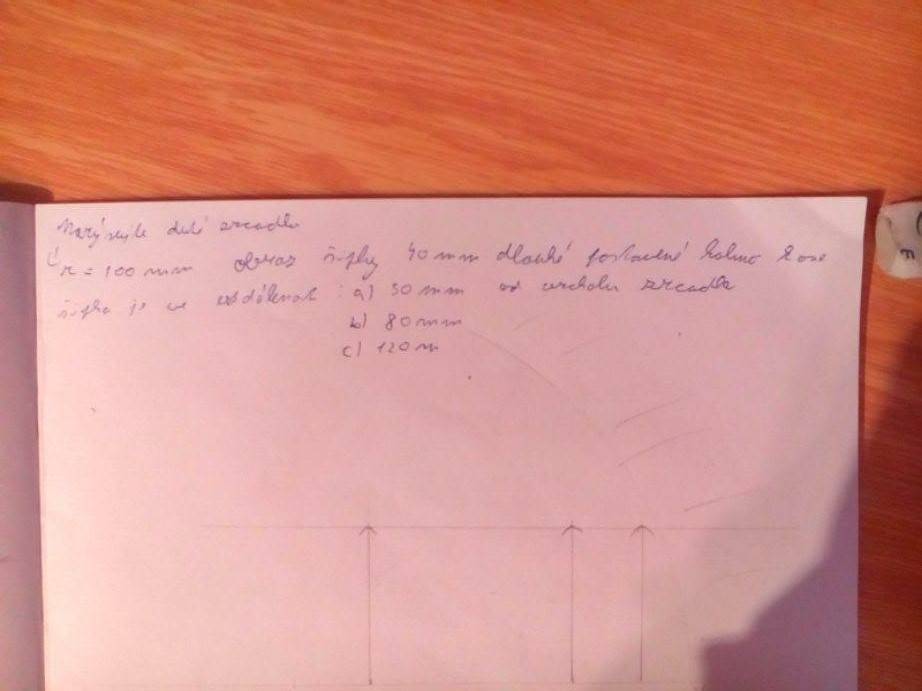 Narýsujte duté zrcadlo
r = 100 mm obraz šipky 40 mm dlouhé postavené kolmo k ose
šipka je ve vzdálenosti: a) 50 mm od vrcholu zrcadla
b) 80 mm
c) 120 m